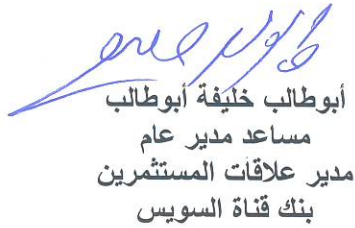 أبوطالب خليفة أبوطالب
مساعد مدير عام
مدير علاقات المستثمرين
بنك قناة السويس